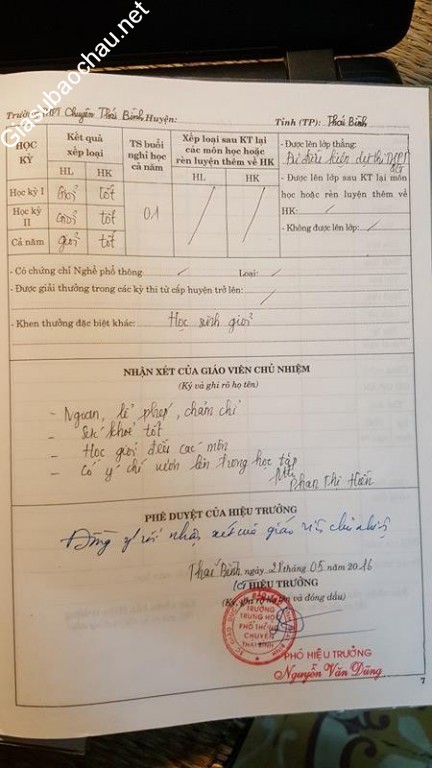 Giasubaochau.net
Trường THPT Chuyên Thái Bình Huyện: Tỉnh (TP): Thái Bình
HỌC KỲ
Kết quả xếp loại
HL HK
TS buổi nghỉ học cả năm
Xếp loại sau KT lại các môn học hoặc rèn luyện thêm về HK
HL HK
- Được lên lớp thẳng:
Đủ điều kiện dự thi THPT QG
- Được lên lớp sau KT lại môn học hoặc rèn luyện thêm về HK:
- Không được lên lớp:
Học kỳ I Giỏi tốt
Học kỳ II Giỏi tốt 01
Cả năm giỏi tốt
- Có chứng chỉ Nghề phổ thông: Loại:
- Được giải thưởng trong các kỳ thi từ cấp huyện trở lên:
- Khen thưởng đặc biệt khác: Học sinh giỏi
NHẬN XÉT CỦA GIÁO VIÊN CHỦ NHIỆM
(Ký và ghi rõ họ tên)
- Ngoan, lễ phép, chăm chỉ
- Sức khoẻ tốt
- Học giỏi đều các môn
- Có ý chí vươn lên trong học tập
Phan Thị Hiền
PHÊ DUYỆT CỦA HIỆU TRƯỞNG
Đồng ý với nhận xét của giáo viên chủ nhiệm
Thái Bình, ngày 28 tháng 05 năm 2016
HIỆU TRƯỞNG
(Ký, ghi rõ họ tên và đóng dấu)
TRƯỜNG
TRUNG HỌC
PHỔ THÔNG
CHUYÊN
THÁI BÌNH
PHÓ HIỆU TRƯỞNG
Nguyễn Văn Dũng
7